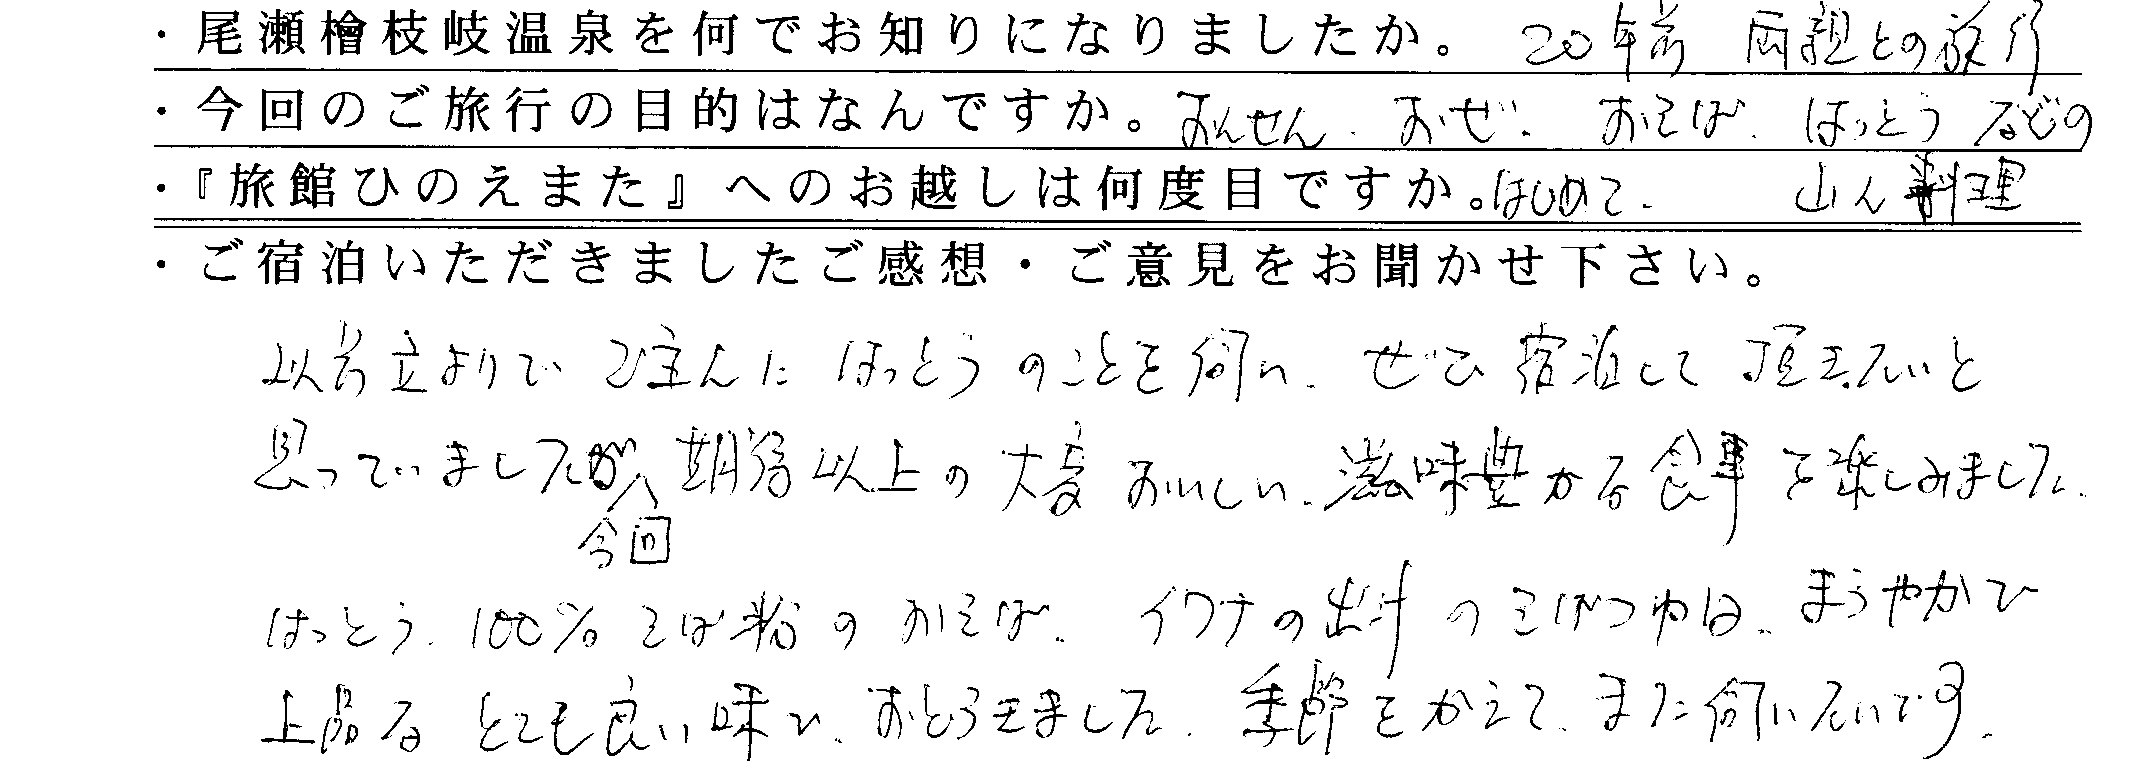 ・尾瀬檜枝岐温泉を何でお知りになりましたか。 20年前 両親との旅行
・今回のご旅行の目的はなんですか。おんせん、おぜ、おそば、はっとうなどの
・『旅館ひのえまた』へのお越しは何度目ですか。はじめて。 山人料理
・ご宿泊いただきましたご感想・ご意見をお聞かせ下さい。
以前立よりで ご主人に はっとうのことを伺い、ぜひ宿泊して頂きたいと
思っていましたが 期待以上の大変おいしい、滋味豊かな食事を楽しみました。
今回
はっとう、100%そば粉のおそば、イワナの出汁のそばつゆは、まろやかで
上品な とても良い味で、おどろきました。季節をかえて、また伺いたいです。